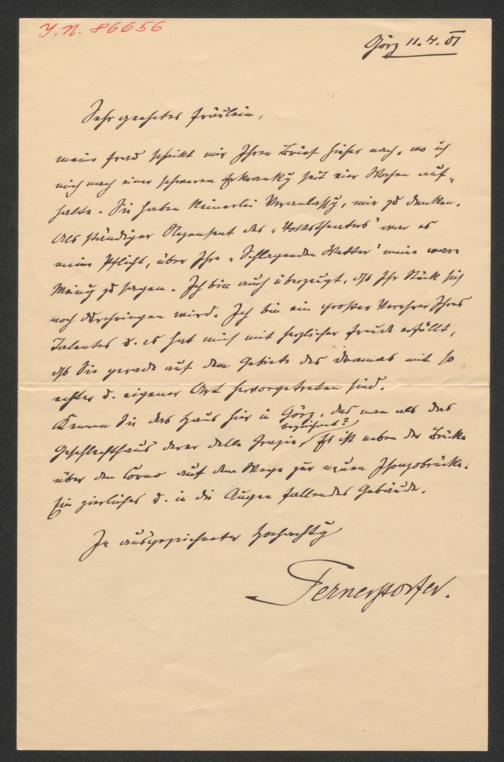 J. N. 86656
Görz 11.4.01
Sehr geehrtes Fräulein,
meine Frau schickt mir Ihren Brief hieher nach, wo ich
mich nach einer schweren Erkrankg seit vier Wochen auf-
halte. Sie haben keinerlei Veranlassg, mir zu danken.
Als ständiger Referent des „Volkstheaters" war es
meine Pflicht, über Ihre „Schlagenden Wetter" meine
Meing zu sagen. Ich bin auch überzeugt, dß Ihr Stück sich
noch durchringen wird. Ich bin ein großer Verehrer Ihres
Talentes u. es hat mich mit herzlicher Freude erfüllt,
dß Sie gerade auf dem Gebiete des Dramas mit so
echter u. eigener Art hervorgetreten sind.
Kennen Sie das Haus hier in Görz, das man als das
bezeichnet?
Geschlechtshaus derer delle Grazie, Es ist neben der Brücke
über den Corno auf dem Wege zur neuen Isonzobrücke.
Ein zierliches u. in die Augen fallendes Gebäude.
In ausgezeichneter Hochachtg
Pernerstorfer.